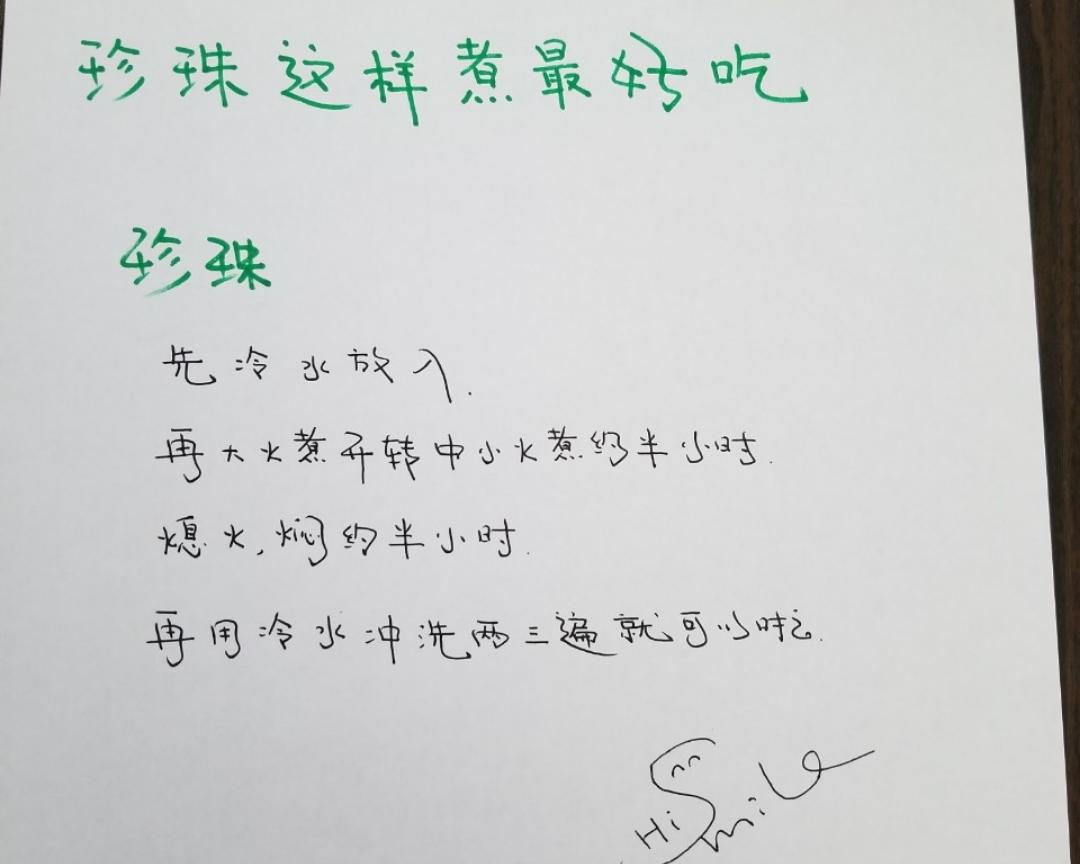 珍珠这样煮最好吃
珍珠
先冷水放入.
再大火煮开转中小火煮约半小时.
熄火,焖约半小时.
再用冷水冲洗两三遍就可以
Hi Smile